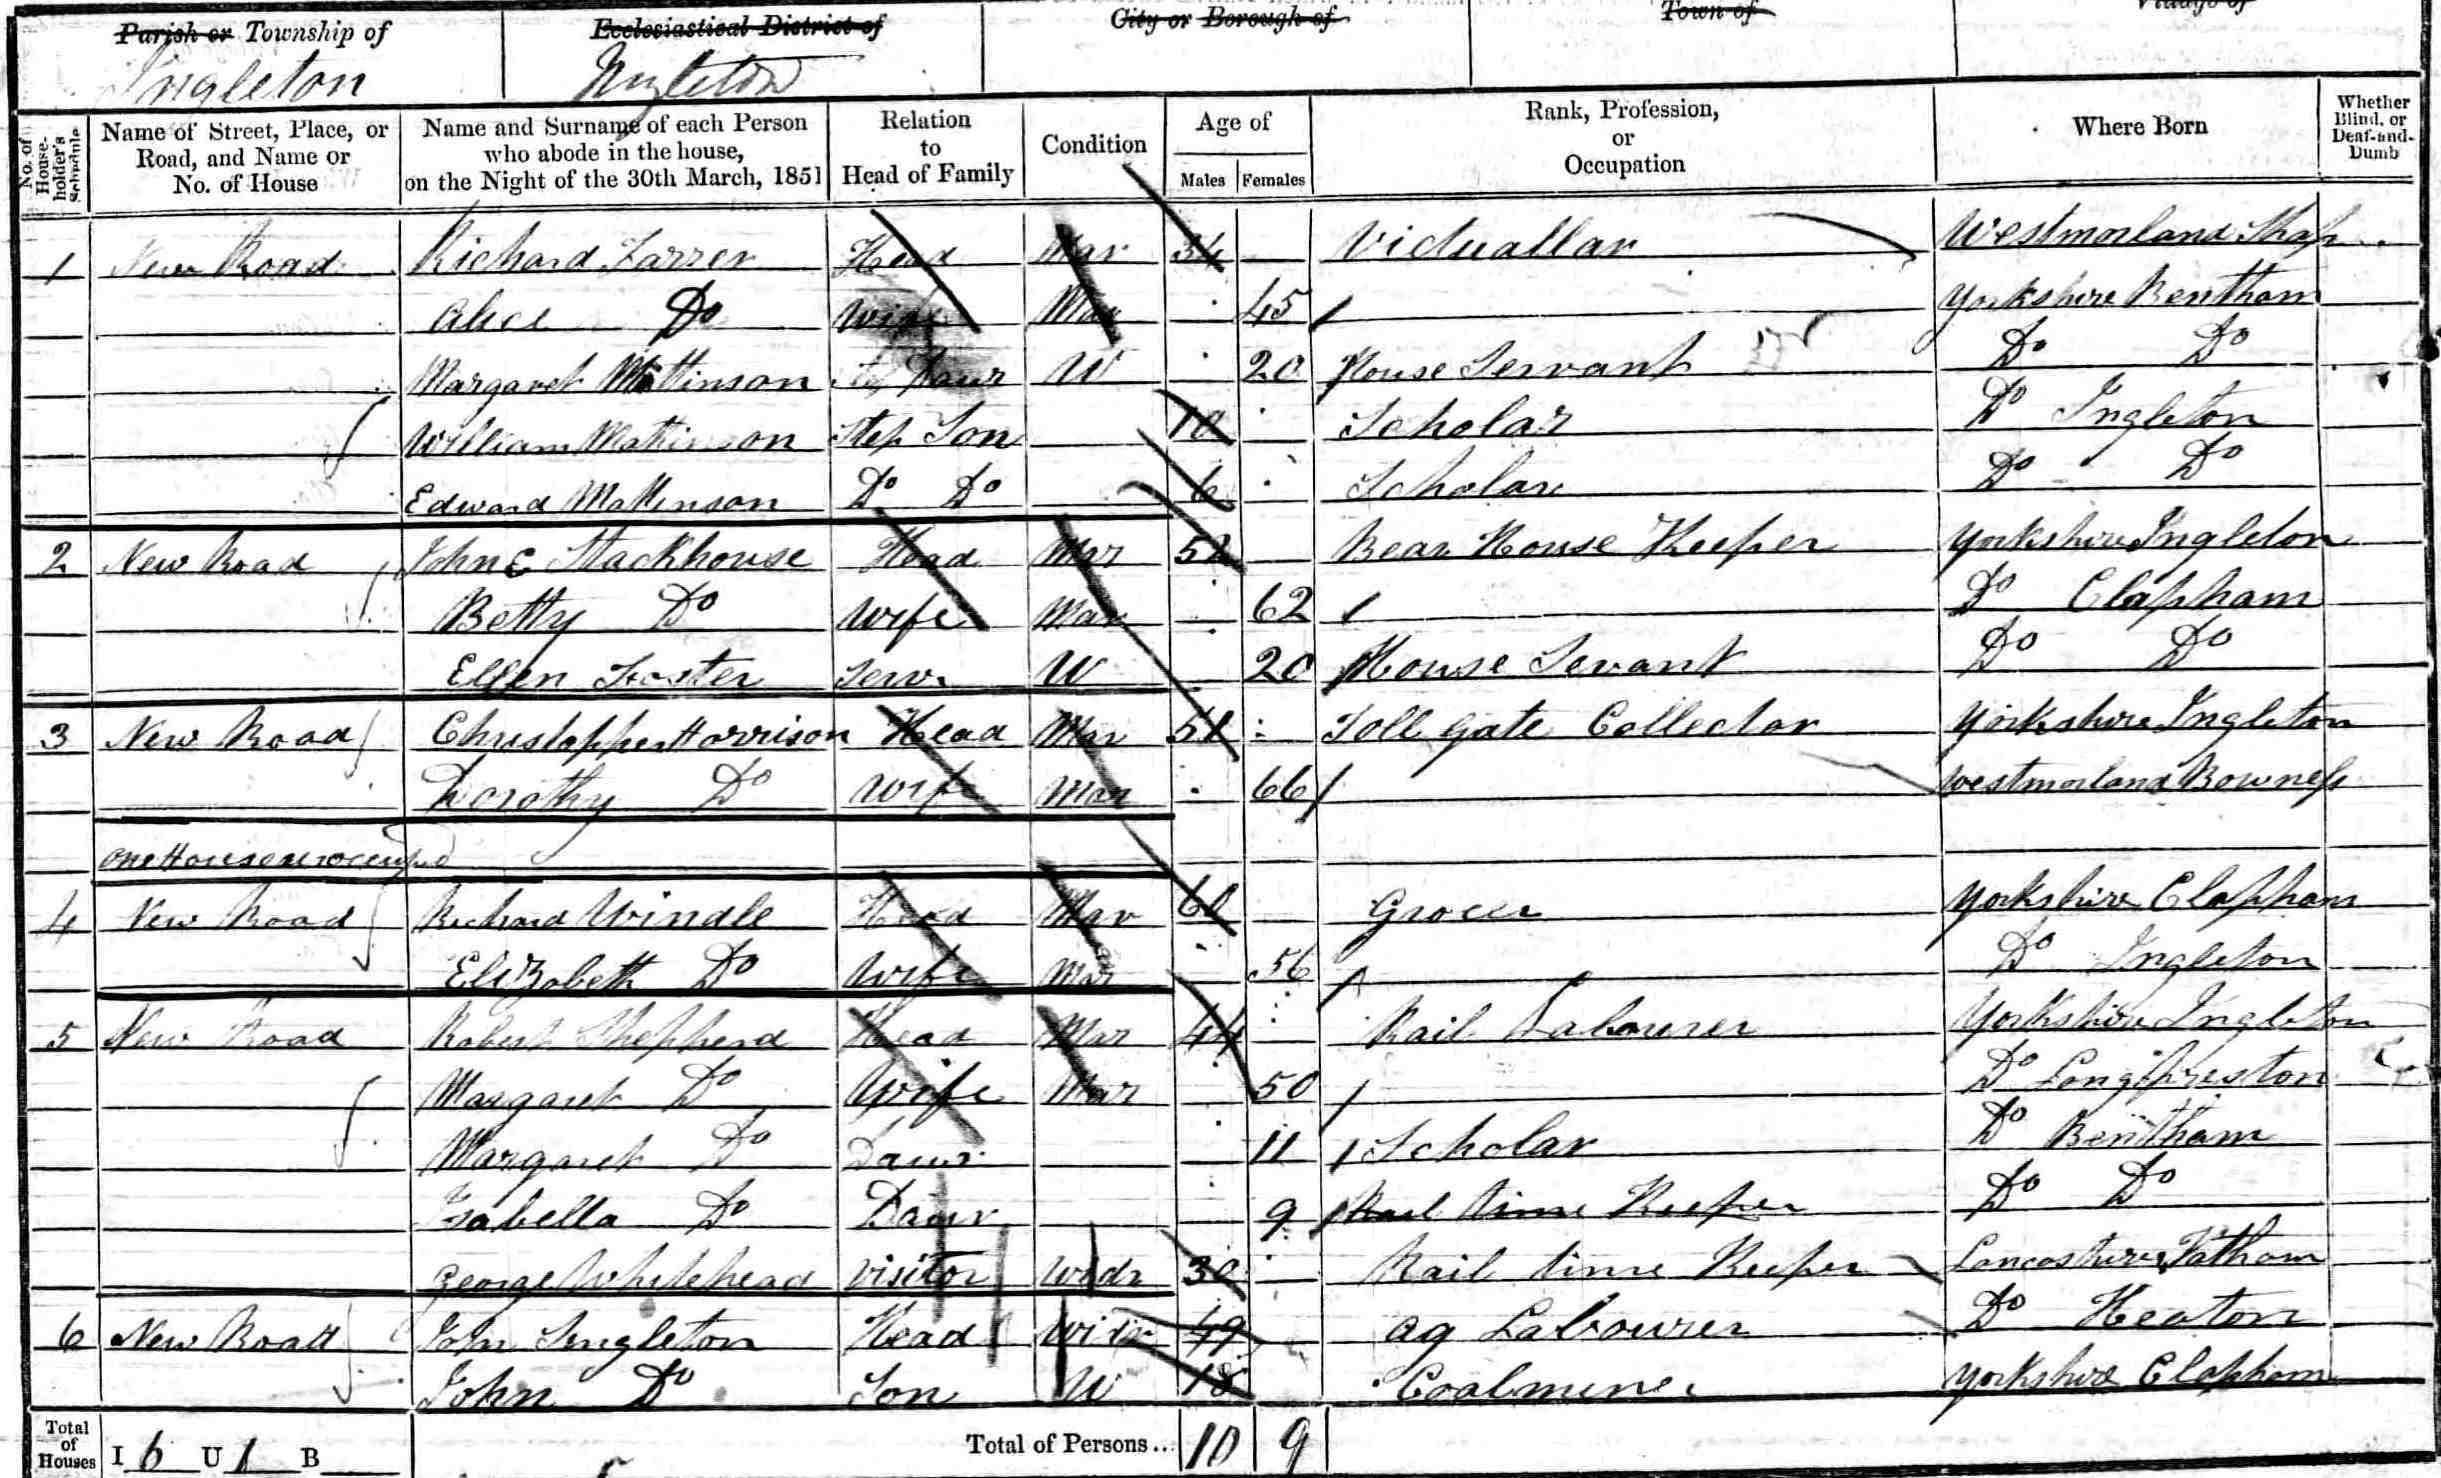 Parish or Township of
Ingleton
Ecclesiastical District of
Ingleton
City or Borough of
Town of
Village of
No. of House-holder's Schedule
Name of Street, Place, or Road, and Name or No. of House
Name and Surname of each Person who abode in the house, on the Night of the 30th March, 1851
Relation to Head of Family
Condition
Age of
Males Females
Rank, Profession, or Occupation
Where Born
Whether Blind, or Deaf-and-Dumb
1 New Road Richard Farrer Head Mar 34 Victuallar Westmorland Shap
Alice Do Wife Mar 45 Yorkshire Bentham
Margaret Mattinson Daur U 20 House Servant Do Do
William Mattinson Step Son 10 Scholar Do Ingleton
Edward Mattinson Do Do 6 Scholar Do Do
2 New Road John C Stackhouse Head Mar 52 Bear House Keeper Yorkshire Ingleton
Betty Do Wife Mar 62 Do Clapham
Ellen Foster Serv. U 20 House Sevant Do Do
3 New Road Christopher Harrison Head Mar 51 Toll gate Collector Yorkshire Ingleton
Dorothy Do Wife Mar 66 Westmorland Bowness
One House unoccupied
4 New Road Richard Windle Head Mar Grocer Yorkshire Clapham
Elizabeth Do Wife Mar 56 Do Ingleton
5 New Road Robert Shepherd Head Mar 44 Rail Labourer Yorkshire Ingleton
Margaret Do Wife Mar 50 Do Longpreston
Margaret Do Daur 11 Scholar Do Bentham
Isabella Do Daur 9 Rail time Keeper Do Do
George Whitehead Visitor Widr 30 Rail time Keeper Lancashire Tatham
6 New Road John Singleton Head Widr 49 Ag Labourer Do Heaton
John Do Son U 18 Coalminer Yorkshire Clapham
Total of Houses I 6 U 1 B
Total of Persons... 10 9